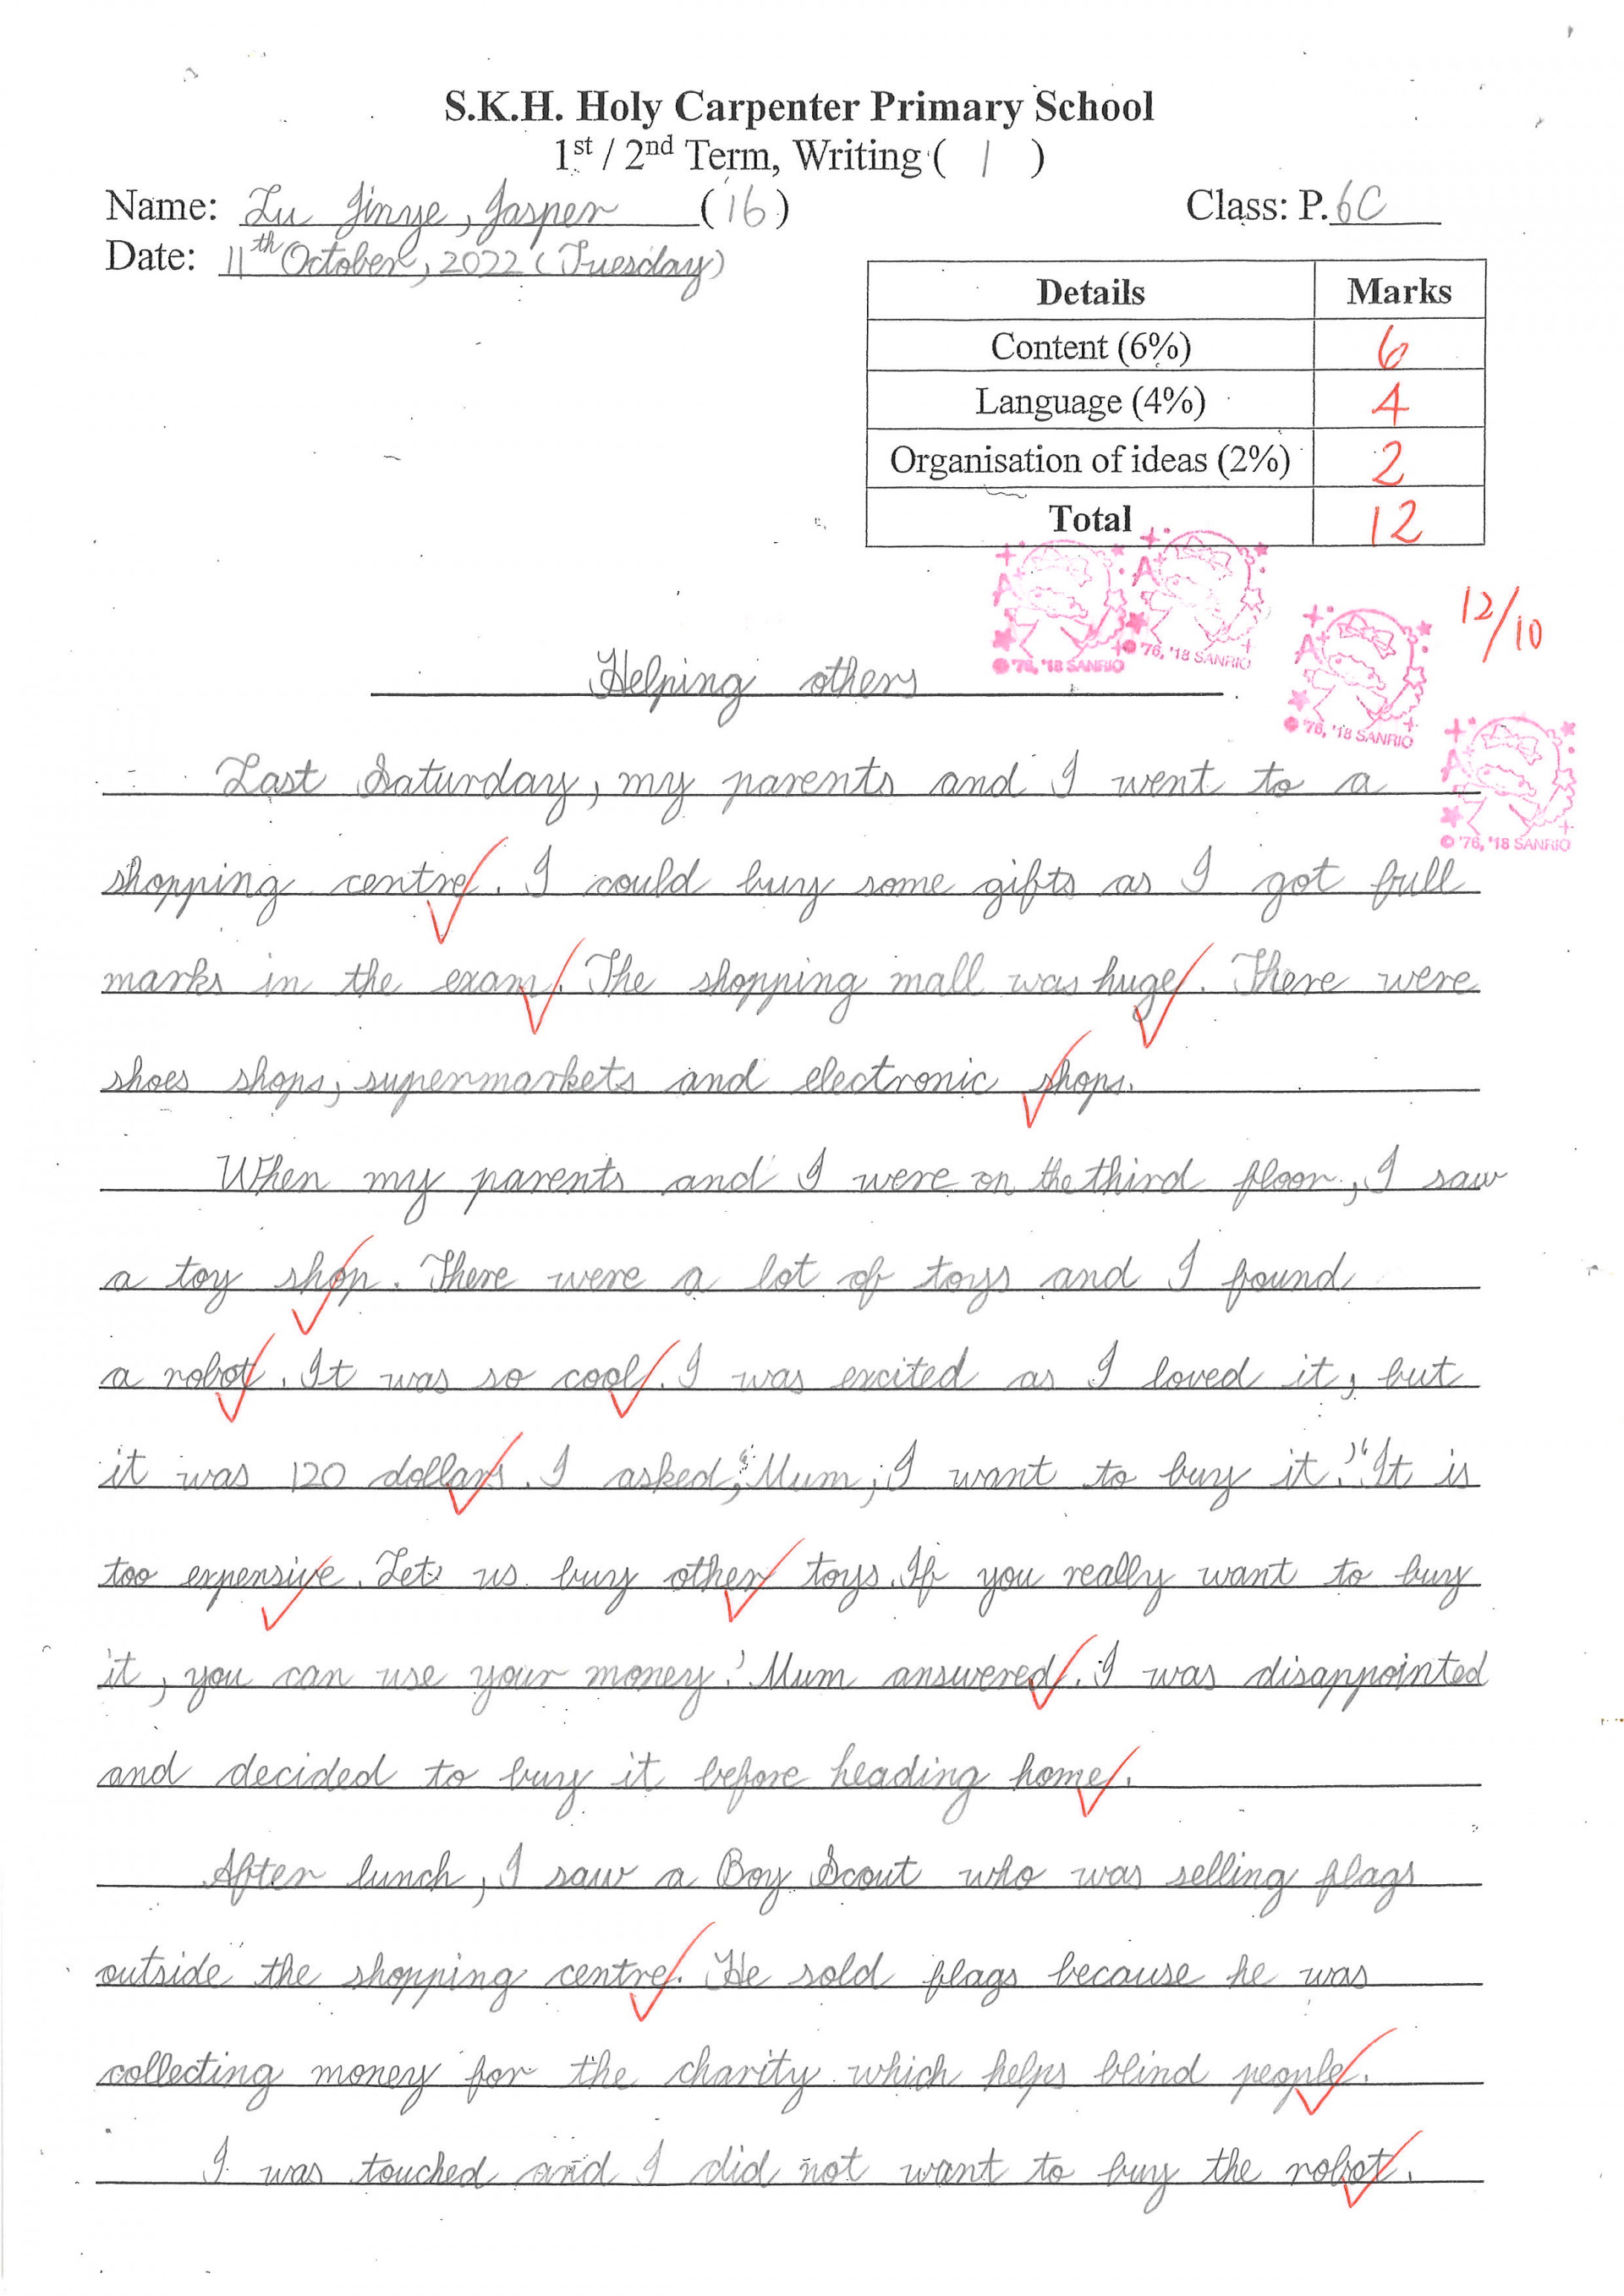 S.K.H. Holy Carpenter Primary School
1st / 2nd Term, Writing ( 1 )
Name: Lu Jinye, Jasper (16) Class: P.6C
Date: 11th October, 2022 (Tuesday)
Details Marks
Content (6%) 6
Language (4%) 4
Organisation of ideas (2%) 2
Total 12
12/10
A+ A+ A+ A+
© '76, '18 SANRIO
© '76, '18 SANRIO
© '76, '18 SANRIO
© '76, '18 SANRIO
Helping others
Last Saturday, my parents and I went to a
shopping centre. I could buy some gifts as I got full
marks in the exam. The shopping mall was huge. There were
shoes shops, supermarkets and electronic shops.
When my parents and I were on the third floor, I saw
a toy shop. There were a lot of toys and I found
a robot. It was so cool. I was excited as I loved it, but
it was 120 dollars. I asked, 'Mum, I want to buy it.' 'It is
too expensive. Let us buy other toys. If you really want to buy
it, you can use your money.' Mum answered. I was disappointed
and decided to buy it before heading home.
After lunch, I saw a Boy Scout who was selling flags
outside the shopping centre. He sold flags because he was
collecting money for the charity which helps blind people.
I was touched and I did not want to buy the robot.